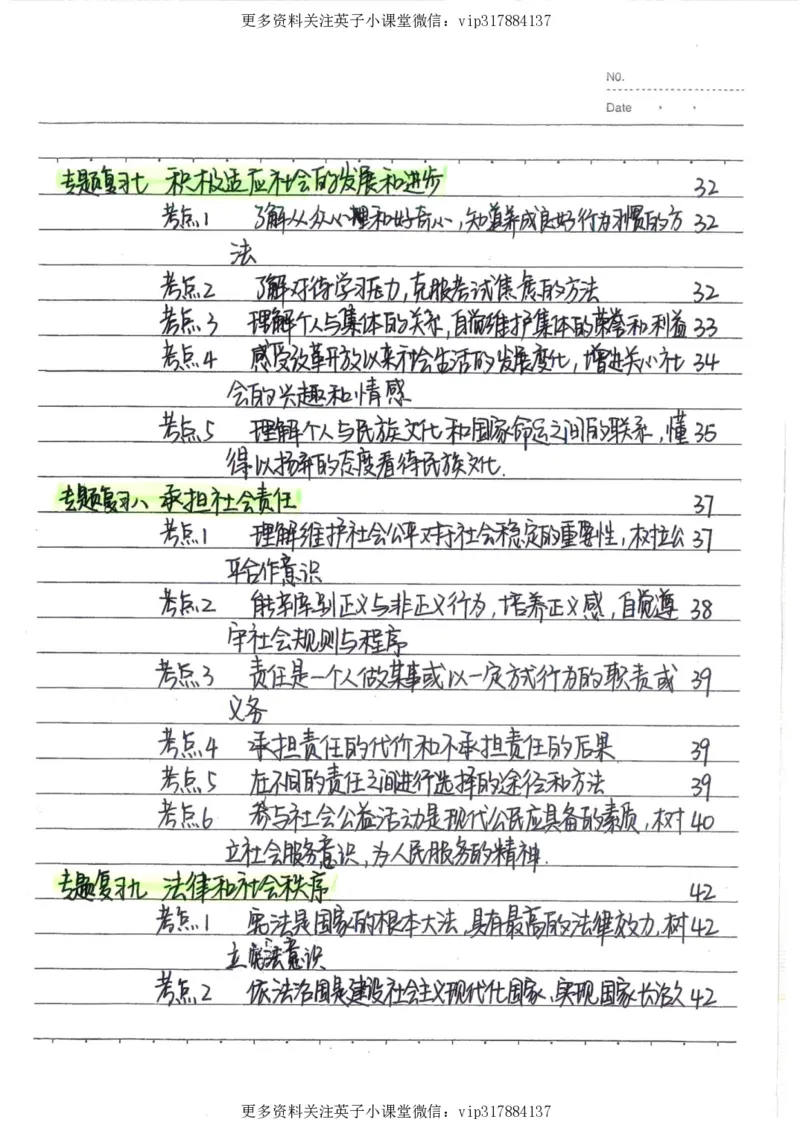 更多资料关注英子小课堂微信：vip317884137
No.
Date
专题复习七 积极适应社会的发展和进步 32
考点1 了解从众心理和好奇心，知道养成良好行为习惯的方 32
法
考点2 了解对待学习压力，克服考试焦虑的方法 32
考点3 理解个人与集体的关系，自觉维护集体的荣誉和利益 33
考点4 感受改革开放以来社会生活的发展变化，增进关心社 34
会的兴趣和情感
考点5 理解个人与民族文化和国家命运之间的联系，懂 35
得以扬弃的态度看待民族文化.
专题复习八 承担社会责任 37
考点1 理解维护社会公平对于社会稳定的重要性，树立公 37
平合作意识
考点2 能辛库别正义与非正义行为，培养正义感，自觉遵 38
守社会规则与程序
考点3 责任是一个人做某事或以一定方式行为的职责或 39
义务
考点4 承担责任的代价和不承担责任的后果 39
考点5 在不同的责任之间进行选择的途径和方法 39
考点6 参与社会公益活动是现代公民应具备的素质，树 40
立社会服务意识，为人民服务的精神.
专题复习九 法律和社会秩序 42
考点1 宪法是国家的根本大法，具有最高的法律效力，树 42
立宪法意识
考点2 依法治国是建设社会主义现代化国家、实现国家长治久 42
更多资料关注英子小课堂微信：vip317884137